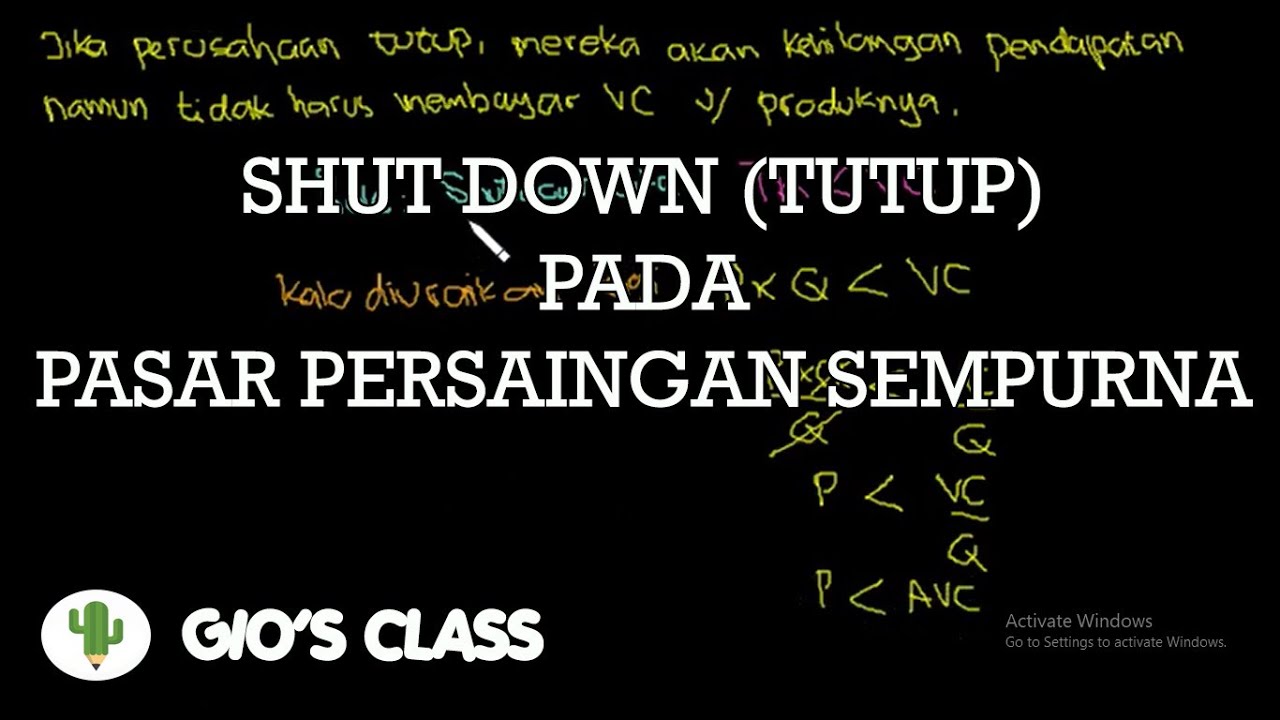 Jika perusahaan tutup, mereka akan kehilangan pendapatan
namun tidak harus membayar VC u/ produknya.
SHUT DOWN (TUTUP)
kalo diuraikan × Q < VC
PADA
PASAR PERSAINGAN SEMPURNA
Q Q
P < VC
Q
P < AVC
GIO'S CLASS
Activate Windows
Go to Settings to activate Windows.